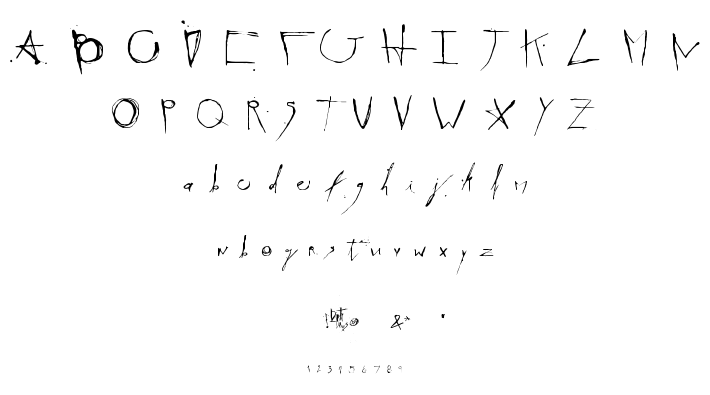 A B C D E F G H I J K L M N
O P Q R S T U V W X Y Z
a b c d e f g h i j k l m
n b o q r s t u v w x y z
&
1 2 3 4 5 6 7 8 9